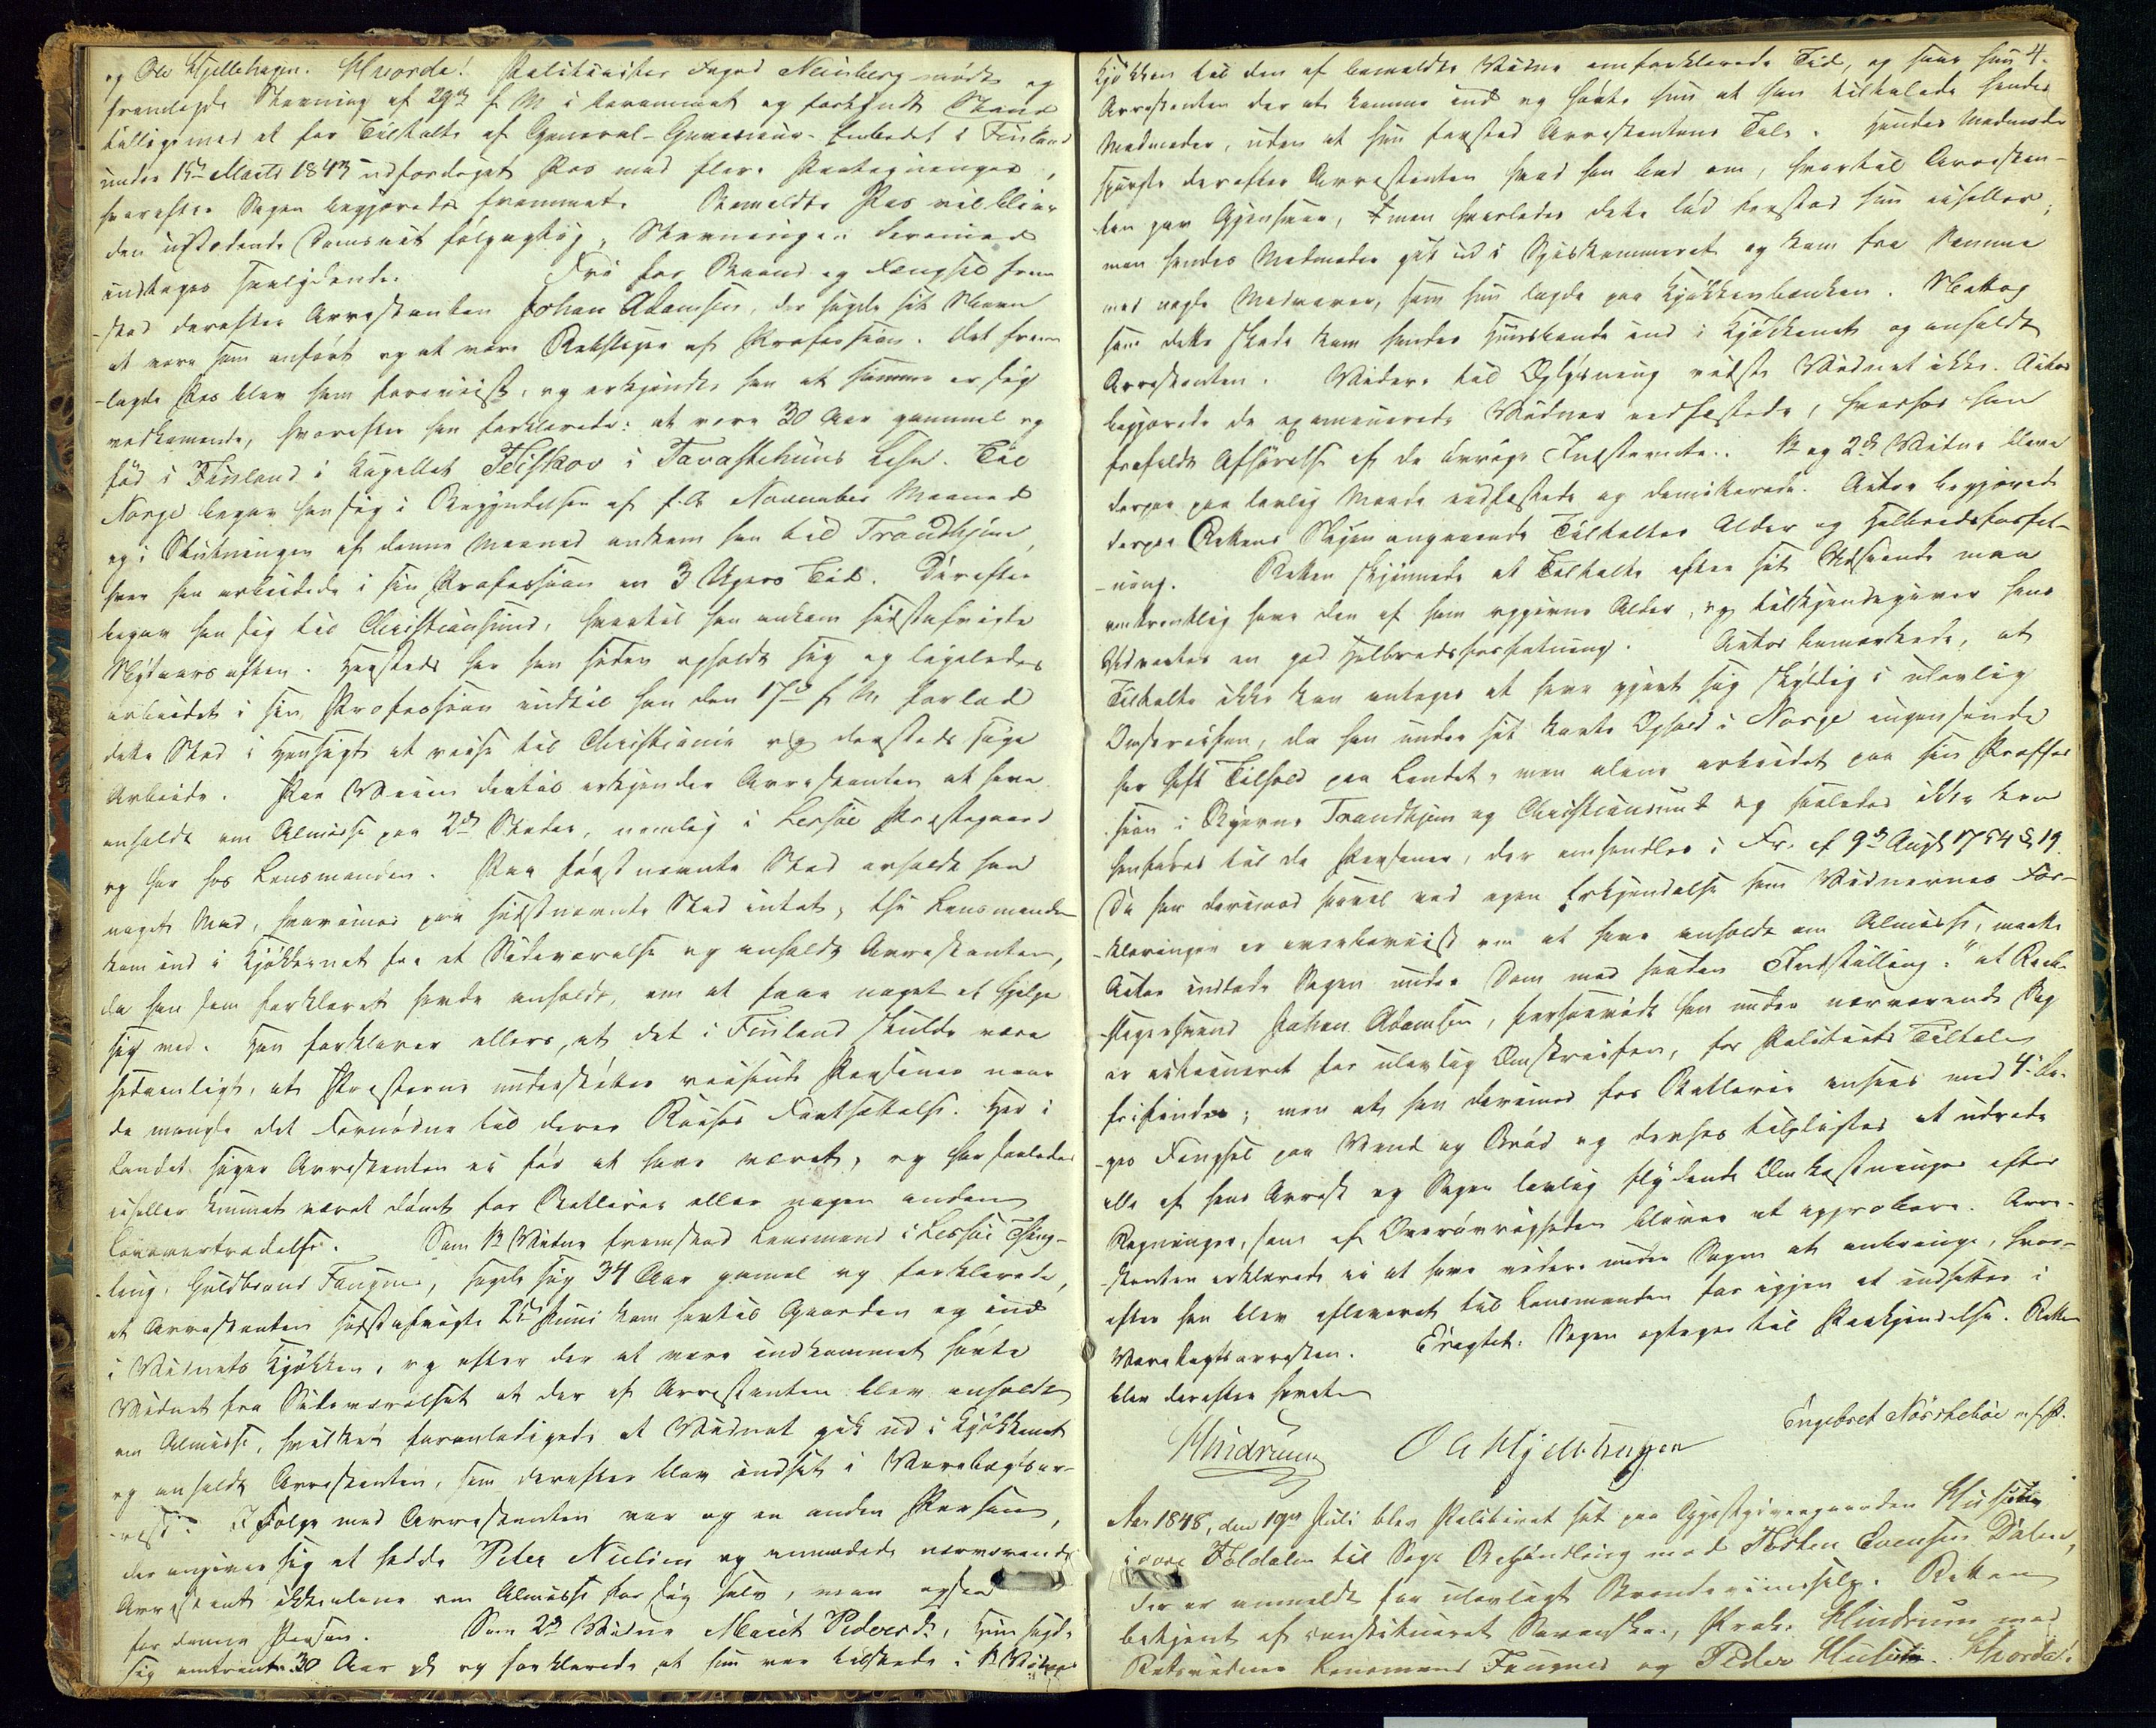 og Ole Hjellehagen. Hvorda! Politimester Foged Neuberg mødte og
fremlagde Stevning af 29de f. M. i berammet og forkyndt Stand
tilligemed et for Tiltalte af General-Guverneur-Embedet i Finland
under 15de Marts 1843 udfærdiget Pas med flere Paategninger,
hvorefter Sagen begjæredes fremmet. Bemeldte Pas vil blive
den udstedende Domsact følgagtig, Stevningen derimod
indtages saalydende. Fri for Baand og Fængsel frem-
-stod derefter Arrestanten Johan Adamsen, der sagde sit Navn
at være som anført og at være Rebslager af Profession. Det frem-
-lagte Pas blev ham foreviist, og erkjendte han at samme er sig
vedkommende, hvorefter han forklarede: at være 30 Aar gammel og
fød i Finland i Capellet Teiskov i Tavastehuus Lehn. Til
Norge begav han sig i Begyndelsen af f. A. November Maaned
og i Slutningen af denne Maaned ankom han til Trondhjem,
hvor han arbeidede i sin Profession en 3 Ugers Tid. Derefter
begav han sig til Christiansund, hvortil han ankom sidstafvigte
Nytaarsaften. Hersteds har han siden opholdt sig og ligeledes
arbeidet i sin Profession indtil han den 17de f. M. forlod
dette Sted i Hensigt at reise til Christiania og dersteds søge
Arbeide. Paa Veien dertil erkjender Arrestanten at have
anholdt om Almisse paa 2de Steder, nemlig i Lessøe Præstegaard
og her hos Lensmanden. Paa førstnævnte Sted erholdt han
noget Mad, hvorimod paa sidstnævnte Sted intet, thi Lensmanden
kom ind i Kjøkkenet fra et Sideværelse og anholdt Arrestanten,
da han som forklaret havde anholdt, om at faae noget at hjelpe
sig med. Han forklarer ellers, at det i Finland skulde være
sedvanligt, at Præsterne understøtter reisende Personer naar
de mangle det Fornødne til deres Reises Fortsættelse. Her i
Landet siger Arrestanten ei før at have været, og har saaledes
eiheller kunnet været dømt for Betlerie eller nogen anden
Lovovertrædelse. Som 1ste Vidne fremstod Lensmand i Lessøe Thing-
-laug, Guldbrand Fougner, sagde sig 34 Aar gamel og forklarede,
at Arrestanten sidstafvigte 25de Juni kom hertil Gaarden og ind
i Vidnets Kjøkken, og efter der at være indkommet hørte
Vidnet fra Sideværelset at der af Arrestanten blev anholdt
om Almisse, hvilket foranledigede at Vidnet gik ud i Kjøkkenet
og anholdt Arrestanten, som derefter blev indsat i Varetægtsar-
-rest. I Følge med Arrestanten var og en anden Person,
der angiver sig at hedde Peter Nielsen og anmodede nærværende
Arrestant ikke alene om Almisse for sig selv, men ogsaa
for denne Person. Som 2det Vidne Marit Pedersd., hun sagde
sig omtrent 30 Aar gl og forklarede at hun var tilstede i 1ste Vidnes
4.
Kjøkken til den af bemeldte Vidne omforklarede Tid, og saae hun
Arrestanten der at komme ind og hørte hun at han tiltalede hendes
Madmoder, uden at hun forstod Arrestantens Tale. Hendes Madmoder
spurgte derefter Arrestanten hvad han bad om, hvortil Arrestan-
-ten gav Gjensvar, men hvorledes dette lød forstod hun eiheller;
men hendes Madmoder gik ud i Spiskammeret og kom fra samme
med nogle Madvarer, som hun lagde paa Kjøkkenbænken. Netop
som dette skede kom hendes Huusbonde ind i Kjøkkenet og anholdt
Arrestanten. Videre til Oplysning vidste Vidnet ikke. Actor
begjærede de examinerede Vidner edfæstede, hvorhos han
frafaldt Afhørelse af de øvrige Indstevnte. 1ste og 2det Vidne bleve
derpaa paa lovlig Maade edfæstede og demitterede. Actor begjærede
derpaa Rettens Skjøn angaaende Tiltaltes Alder og Helbredsforfat-
-ning. Retten skjønnede at Tiltalte efter sit Udseende maa
omtrentlig have den af ham opgivne Alder, og tilkjendegiver hans
Udvortes en god Helbredsforfatning. Actor bemærkede, at
Tiltalte ikke kan antages at have gjort sig skyldig i ulovlig
Omstreifen, da han under sit korte Ophold i Norge ingensinde
har havt Tilhold paa Landet, men alene arbeidet paa sin Profes-
sion i Byerne Trondhjem og Christiansund og saaledes ikke kan
henføres til de Personer, der omhandles i Fr. af 9de Augt 1754 § 19.
Da han derimod saavel ved egen Erkjendelse som Vidnernes For-
-klaringer er overbeviist om at have anholdt om Almisse, maatte
Actor indlade Sagen under Dom med saadan Indstilling: "at Reeb-
-slagersvend Johan Adamsen, forsaavidt han under nærværende Sag
er actioneret for ulovlig Omstreifen, for Politiets Tiltale
frifindes; men at han derimod for Betlerie ansees med 4re Da-
-ges Fængsel paa Vand og Brød og derhos tilpligtes at udrede
alle af hans Arrest og Sagen lovlig flydende Omkostninger efter
Regninger, som af Overøvrigheden bliver at approbere. Arre-
-stanten erklærede ei at have videre under Sagen at anbringe, hvor-
efter han blev afleveret til Lensmanden for igjen at indsættes i
Varetægtsarresten. Eragtet: Sagen optages til Paakjendelse. Retten
blev derefter hævet
Engebret Nørstebøe m. f. P.
Hindrum Ole Hjellehagen
Aar 1848, den 19de Juli blev Politiret sat paa Gjæstgivergaarden Husum
i øvre Foldalen til Sags Behandling mod Torsten Evensen Dalen,
der er anmeldt for ulovligt Brændeviinssalg. Retten
betjent af constitueret Sorensk., Prok. Hindrum med
Retsvidner Lensmand Fougner og Peder Husum. Hvorda!